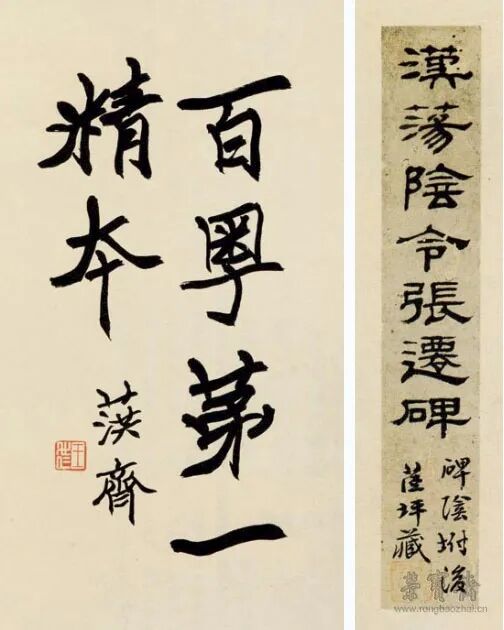 漢蕩陰令張遷碑
碑陰坿後
坪藏
百粵第一
精本
葓齊
榮寶齋
www.rongbaozhai.cn